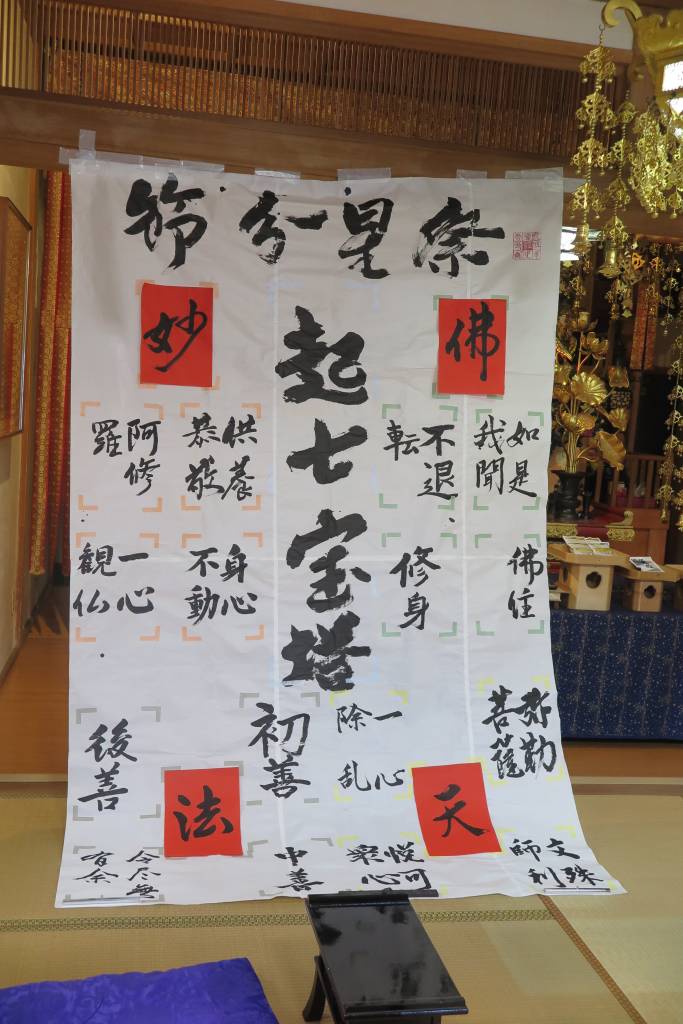 節分星祭
佛
如是
我聞
佛住
弥勒
菩薩
文殊
師利
不退
転
修身
天
一心
除乱
悦可
衆心
起七宝塔
供養
恭敬
身心
不動
初善
中善
妙
阿修
羅
一心
観仏
後善
法
令尽無
有余